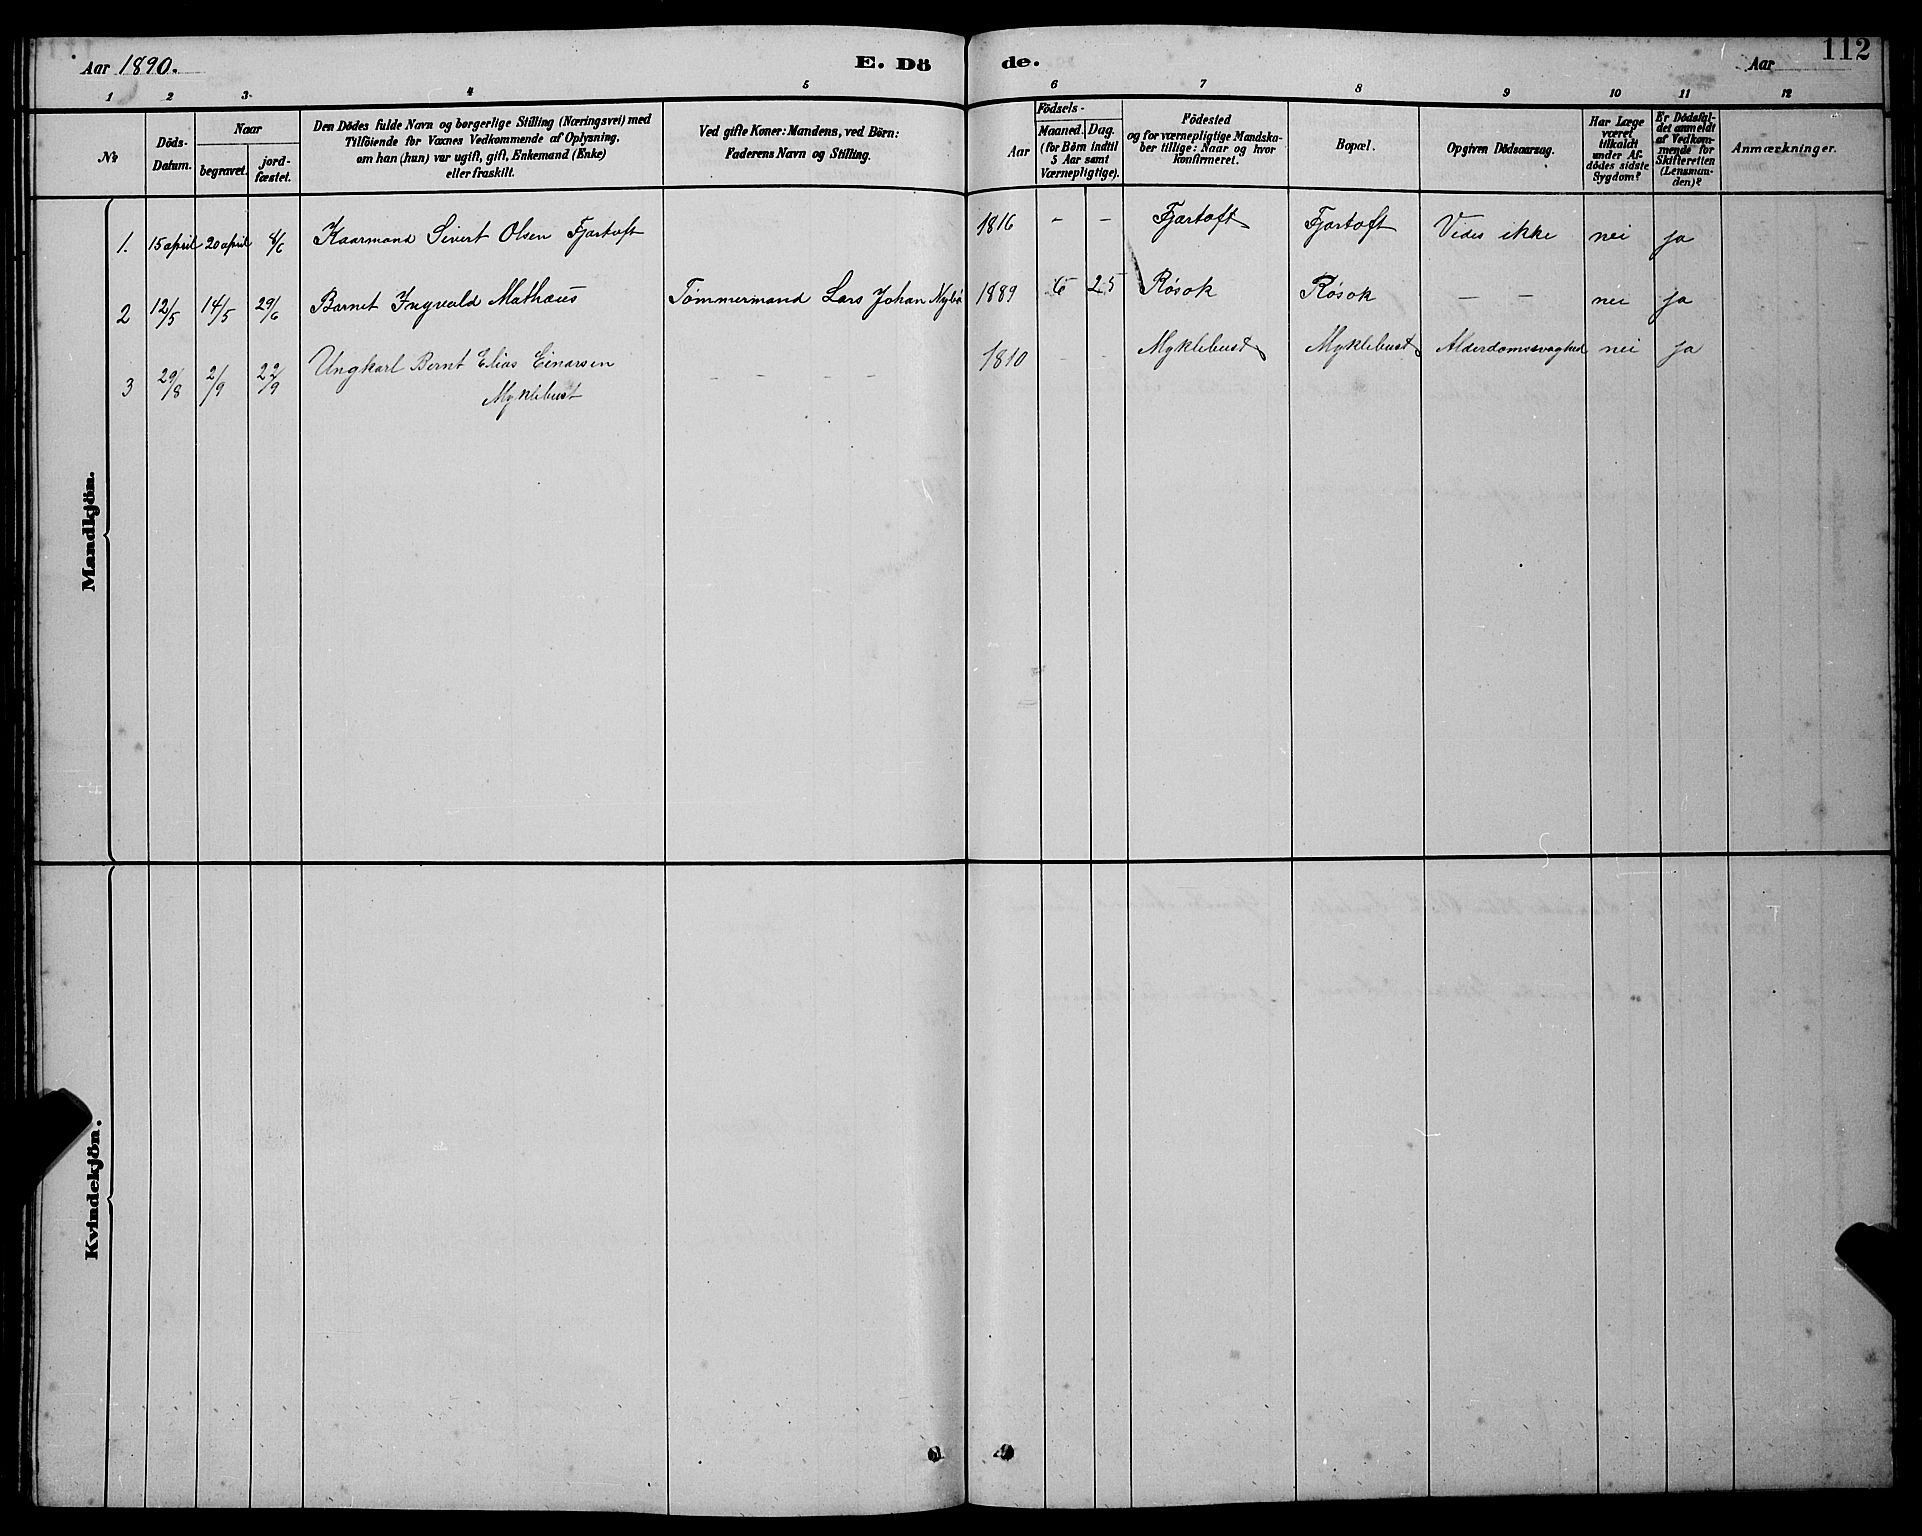 112
Aar 1890.
E. Dö de.
Aar
1 2 3 4 5 6 7 8 9 10 11 12
No
Döds-
Datum.
Naar
begravet.
jord-
fæstet.
Den Dödes fulde Navn og borgerlige Stilling (Næringsvei) med
Tilföiende for Voxnes Vedkommende af Oplysning,
om han (hun) var ugift, gift, Enkemand (Enke)
eller fraskilt.
Ved gifte Koner: Mandens, ved Börn:
Faderens Navn og Stilling.
Födsels-
Aar
Maaned. Dag.
(for Börn indtil
5 Aar samt
Værnepligtige).
Födested
og for værnepligtige Mandska-
ber tillige: Naar og hvor
konfirmeret.
Bopæl.
Opgiven Dödsaarsag.
Har Læge
været
tilkaldt
under Af-
dödes sidste
Sygdom?
Er Dödsfal-
det anmeldt
af Vedkom-
mende for
Skifteretten
(Lensman-
den)?
Anmærkninger.
Mandkjön.
1. 15 april 20 april 8/6 Kaarmand Sivert Olsen Fjortoft 1816 - - Fjortoft Fjortoft Vides ikke nei ja
2 12/5 14/5 29/6 Barnet Ingvald Mathæus Tømmermand Lars Johan 1889 6 25 Røsok Røsok - - nei ja
3 29/8 2/9 22/9 Ungkarl Bernt Elias Einarsen - - - - 1810 - - Myklebust Myklebust Alderdomssvaghed nei ja
Myklebust
Kvindekjön.